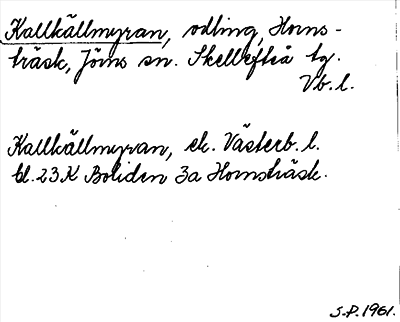 Kallkällmyran, odling, Horns-
träsk, Jörns sn. Skellefteå tg.
Vb. l.
Kallkällmyran, ek. Västerb. l.
bl. 23 K Boliden 3a Hornsträsk.
S.P. 1961.